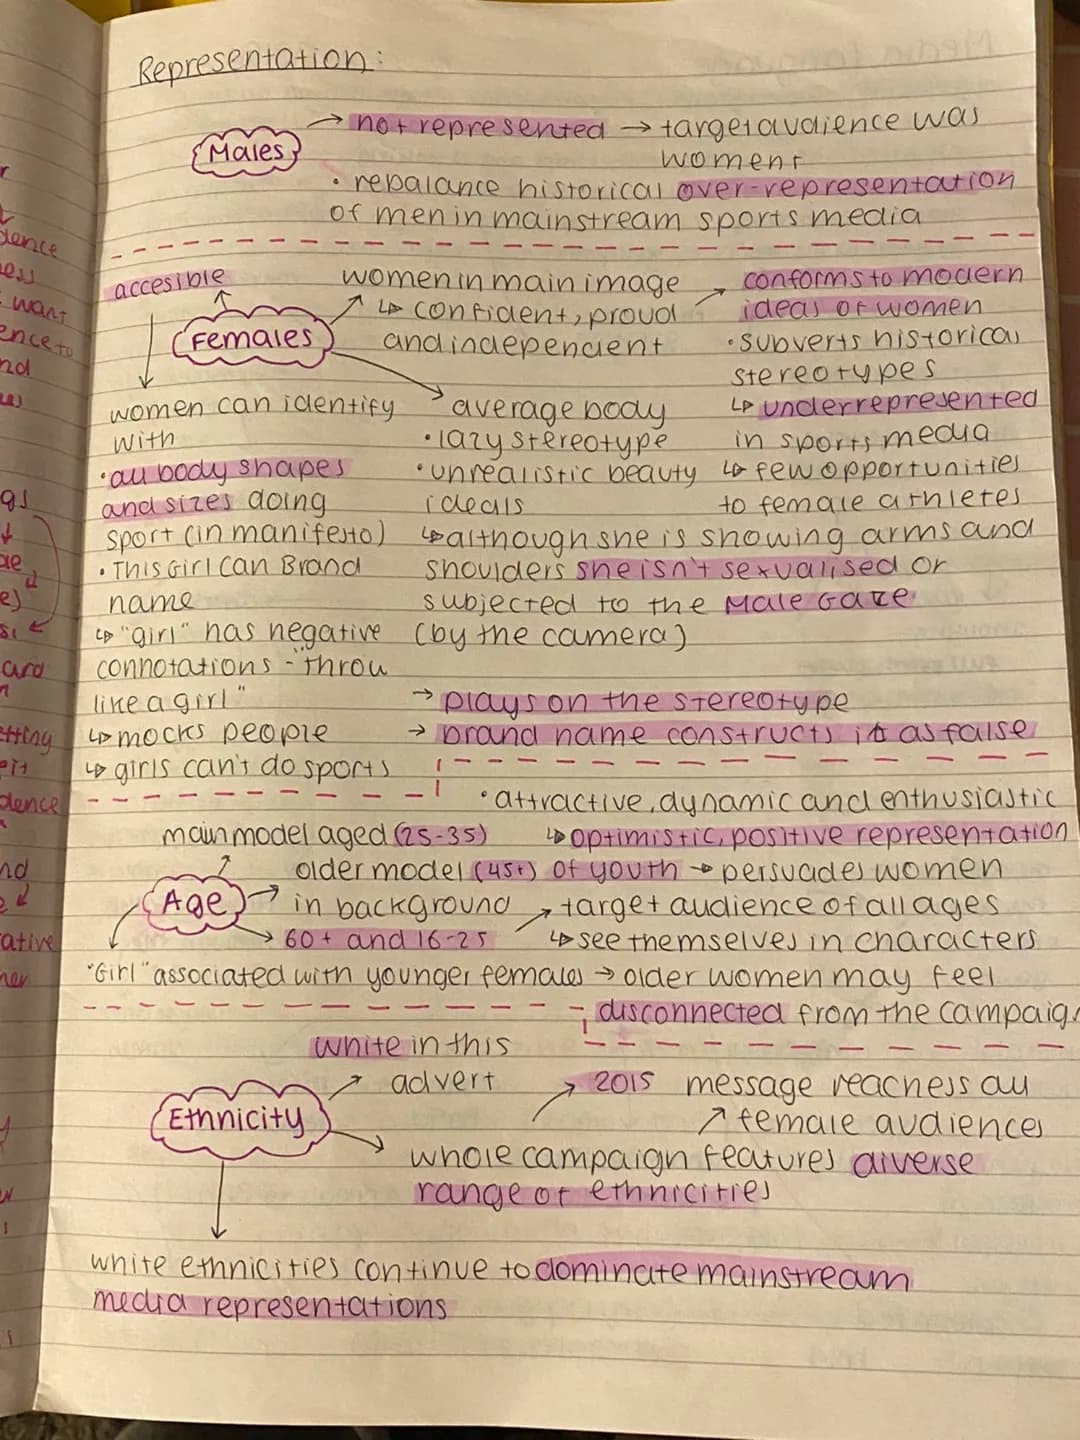 Representation:
Males
→ not represented → target audience was
women
• rebalance historical over-representation
of men in mainstream sports media
accesible
Females
women in main image
↳ confident, proud
and independent
conforms to modern
ideas of women
• subverts historical
stereotypes
↳ underrepresented
in sports media
↳ few opportunities
to female athletes
women can identify
with
• all body shapes
and sizes doing
sport (in manifesto)
• This Girl Can Brand
name
↳ "girl" has negative
connotations - "throw
like a girl"
↳ mocks people
↳ girls can't do sports
average body
• lazy stereotype
• unrealistic beauty
ideals
↳ although she is showing arms and
shoulders she isn't sexualised or
subjected to the Male Gaze
(by the camera)
→ plays on the stereotype
→ brand name constructs it as false
Age
main model aged (25-35)
older model (45+)
in background
→ 60+ and 16-25
• attractive, dynamic and enthusiastic
↳ optimistic, positive representation
of youth → persuades women
→ target audience of all ages
↳ see themselves in characters
"Girl" associated with younger females → older women may feel
disconnected from the campaign
Ethnicity
white in this
advert
whole campaign features diverse
range of ethnicities
→ 2015 message reachess all
female audiences
white ethnicities continue to dominate mainstream
media representations
dence
want
ence to
nd
gs
ard
dence
ative